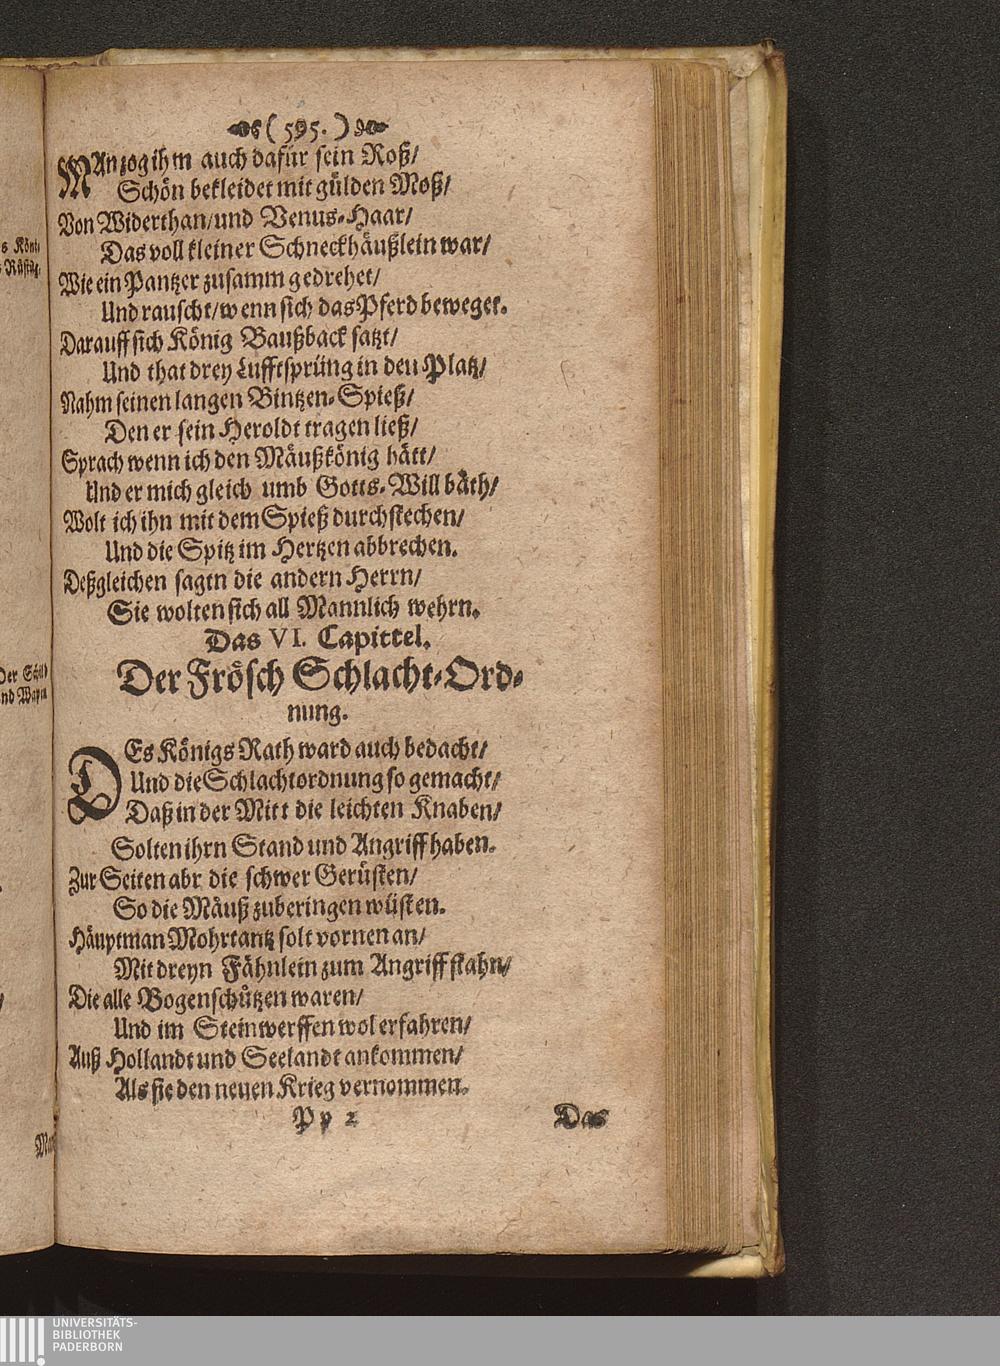 (595.)
MAn zog ihm auch dafür sein Roß/
Schön bekleidet mit gülden Moß/
Von Widerthan/und Venus-Haar/
Das voll kleiner Schneckhäußlein war/
Wie ein Pantzer zusamm gedrehet/
Und rauscht/wenn sich das Pferd beweget.
Darauff sich König Baußback satzt/
Und that drey Lufftsprüng in den Platz/
Nahm seinen langen Bintzen-Spieß/
Den er sein Heroldt tragen ließ/
Sprach wenn ich den Mäußkönig hätt/
Und er mich gleich umb Gotts-Will bäth/
Wolt ich ihn mit dem Spieß durchstechen/
Und die Spitz im Hertzen abbrechen.
Deßgleichen sagtn die andern Herrn/
Sie wolten sich all Mannlich wehrn.
Das VI. Capittel.
Der Frösch Schlacht-Ord-
nung.
DEs Königs Rath ward auch bedacht/
Und die Schlachtordnung so gemacht/
Daß in der Mitt die leichten Knaben/
Solten ihrn Stand und Angriff haben.
Zur Seiten abr die schwer Gerüsten/
So die Mäuß zuberingen wüsten.
Häuptman Mohrtantz solt vornen an/
Mit dreyn Fähnlein zum Angriff stahn/
Die alle Bogenschützen waren/
Und im Steinwerffen wol erfahren/
Auß Hollandt und Seelandt ankommen/
Als sie den neuen Krieg vernommen.
Pp 2 Das
UNIVERSITÄTS-
BIBLIOTHEK
PADERBORN